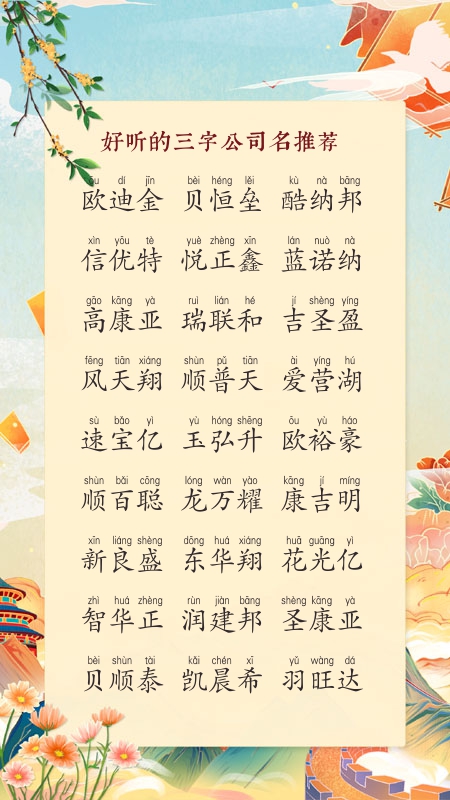 好听的三字公司名推荐
ōu dí jīn bèi héng lěi kù nà bāng
欧迪金 贝恒垒 酷纳邦
xìn yōu tè yuè zhèng xīn lán nuò nà
信优特 悦正鑫 蓝诺纳
gāo kāng yà ruì lián hé jí shèng yíng
高康亚 瑞联和 吉圣盈
fēng tiān xiáng shùn pǔ tiān ài yíng hú
风天翔 顺普天 爱营湖
sù bǎo yì yù hóng shēng ōu yù háo
速宝亿 玉弘升 欧裕豪
shùn bǎi cōng lóng wàn yào kāng jí míng
顺百聪 龙万耀 康吉明
xīn liáng shèng dōng huá xiáng huā guāng yì
新良盛 东华翔 花光亿
zhì huá zhèng rùn jiàn bāng shèng kāng yà
智华正 润建邦 圣康亚
bèi shùn tài kǎi chén xī yǔ wàng dá
贝顺泰 凯晨希 羽旺达